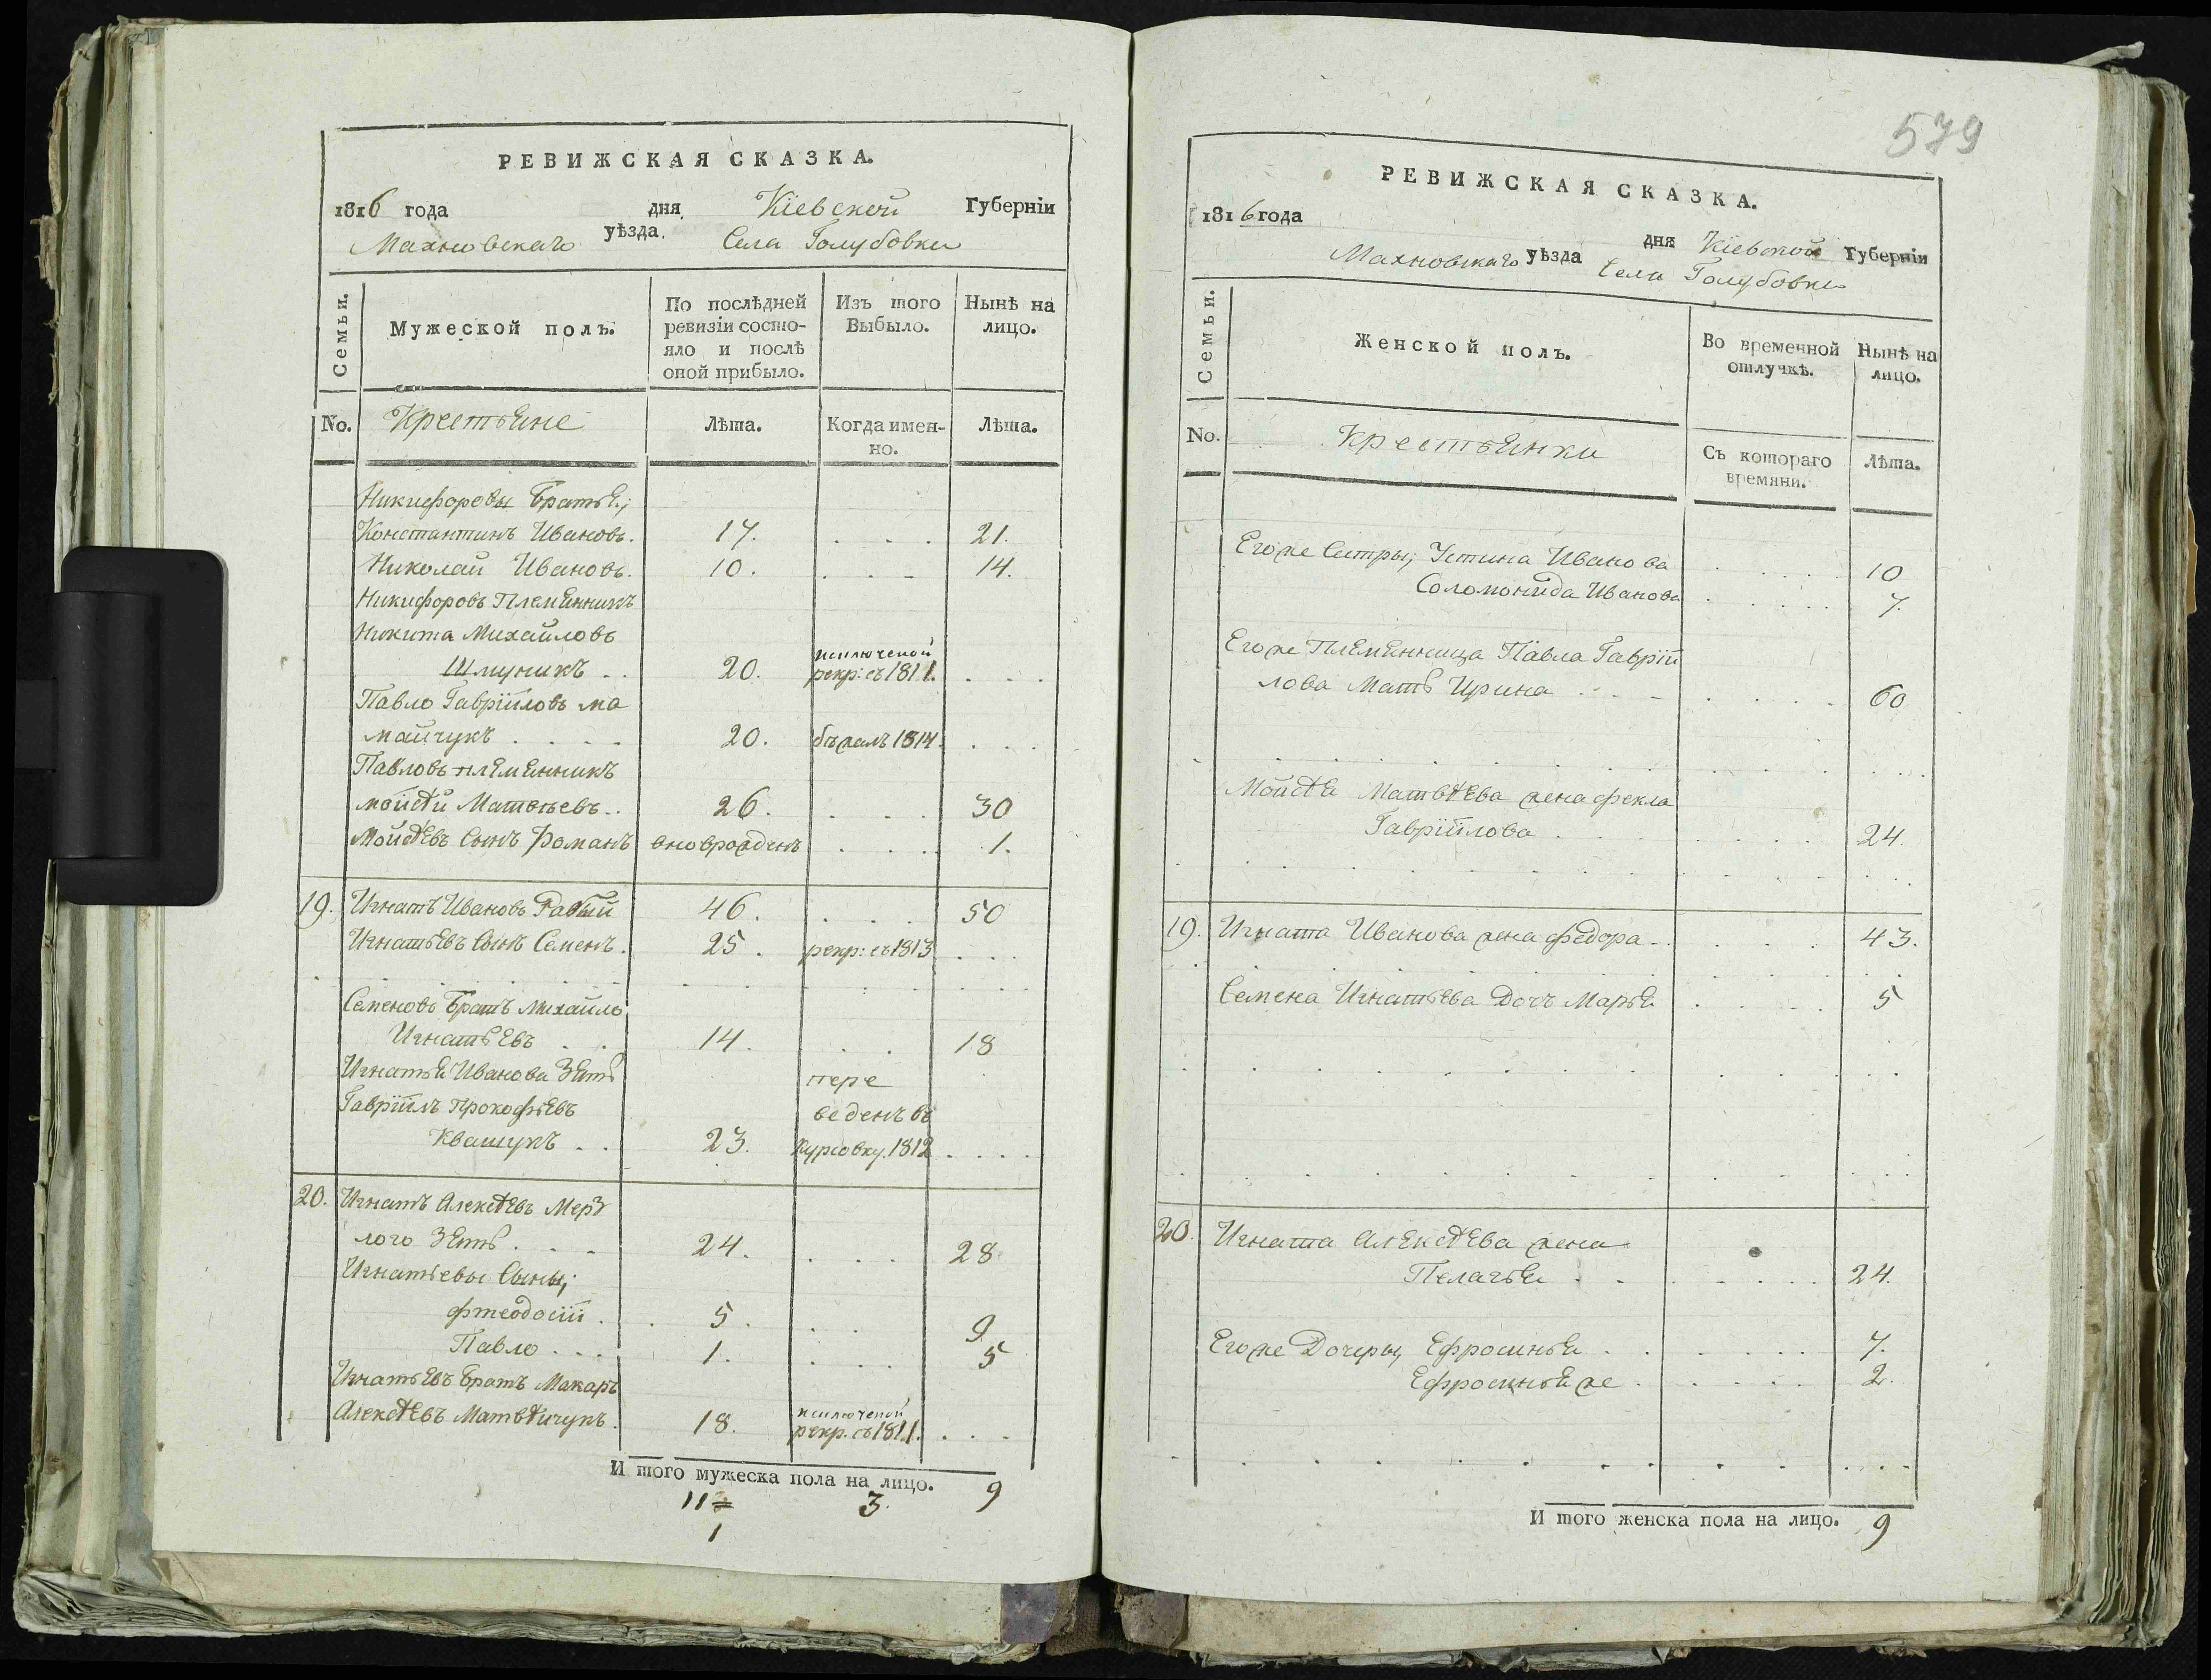 РЕВИЖСКАЯ СКАЗКА.
1816 года дня Кіевской Губерніи
Махновскаго уѣзда. Села Голубовки
Семьи.
Мужеской полъ.
По послѣдней ревизіи состояло и послѣ оной прибыло.
Изъ того Выбыло.
Нынѣ на лицо.
No. Крестьяне Лѣта. Когда именно. Лѣта.
Никифоровы Братья;
Константинъ Ивановъ. 17. . . . 21.
Николай Ивановъ. 10. . . . 14.
Никифоровъ Племянникъ
Никита Михайловъ
20. рекр: съ 1811. . . .
Павло Гавріиловъ ма
майчукъ . . . . 20. бѣжалъ 1814. . . .
Павловъ племянникъ
мойсѣй Матвѣевъ . . 26. . . . 30
Мойсѣевъ Сынъ Романъ вноврожденъ . . . 1.
19. Игнатъ Ивановъ Рабый 46. . . . 50
Игнатьевъ Сынъ Семенъ. 25. рекр: съ 1813 . . .
Семеновъ Братъ Михайло
Игнатьевъ . . 14. . . 18
Игнатья Иванова Зять пере
Гавріилъ Прокофьевъ веденъ въ
Квашукъ . . 23. 1812 . . . .
20. Игнатъ Алексѣевъ Мерз
лого Зять . . . 24. . . . 28
Игнатьевы Сыны;
фтеодосій . . 5. . . 9
Павло . . . 1. . . . 5
Игнатьевъ Братъ Макаръ
Алексѣевъ Матвѣйчукъ. 18. рекр. съ 1811. . . .
И того мужеска пола на лицо.
11= 3. 9
1
579
РЕВИЖСКАЯ СКАЗКА.
1816 года
дня Кіевской Губерніи
Махновскаго уѣзда Села Голубовки
Семьи.
Женской полъ.
Во временной отлучкѣ.
Нынѣ на лицо.
No. Крестьянки Съ котораго времяни. Лѣта.
Егоже Сестры; Устина Иванова . . . . 10
Соломонида Иванова . . . . 7.
Егоже Племянница Павла Гавріи
лова Мать Ирина . . . . . . . 60
Мойсѣя Матвѣева жена фекла
Гавріилова . . . . . . . 24.
19. Игната Иванова жена федора . . . . . 43.
Семена Игнатьева Дочь Марья . . . . 5
20. Игната Алексѣева жена
Пелагья . . . . . . . 24.
Егоже Дочеры, Ефросинья . . . . . . . 7.
Ефросинья же . . . . . . 2.
И того женска пола на лицо. 9